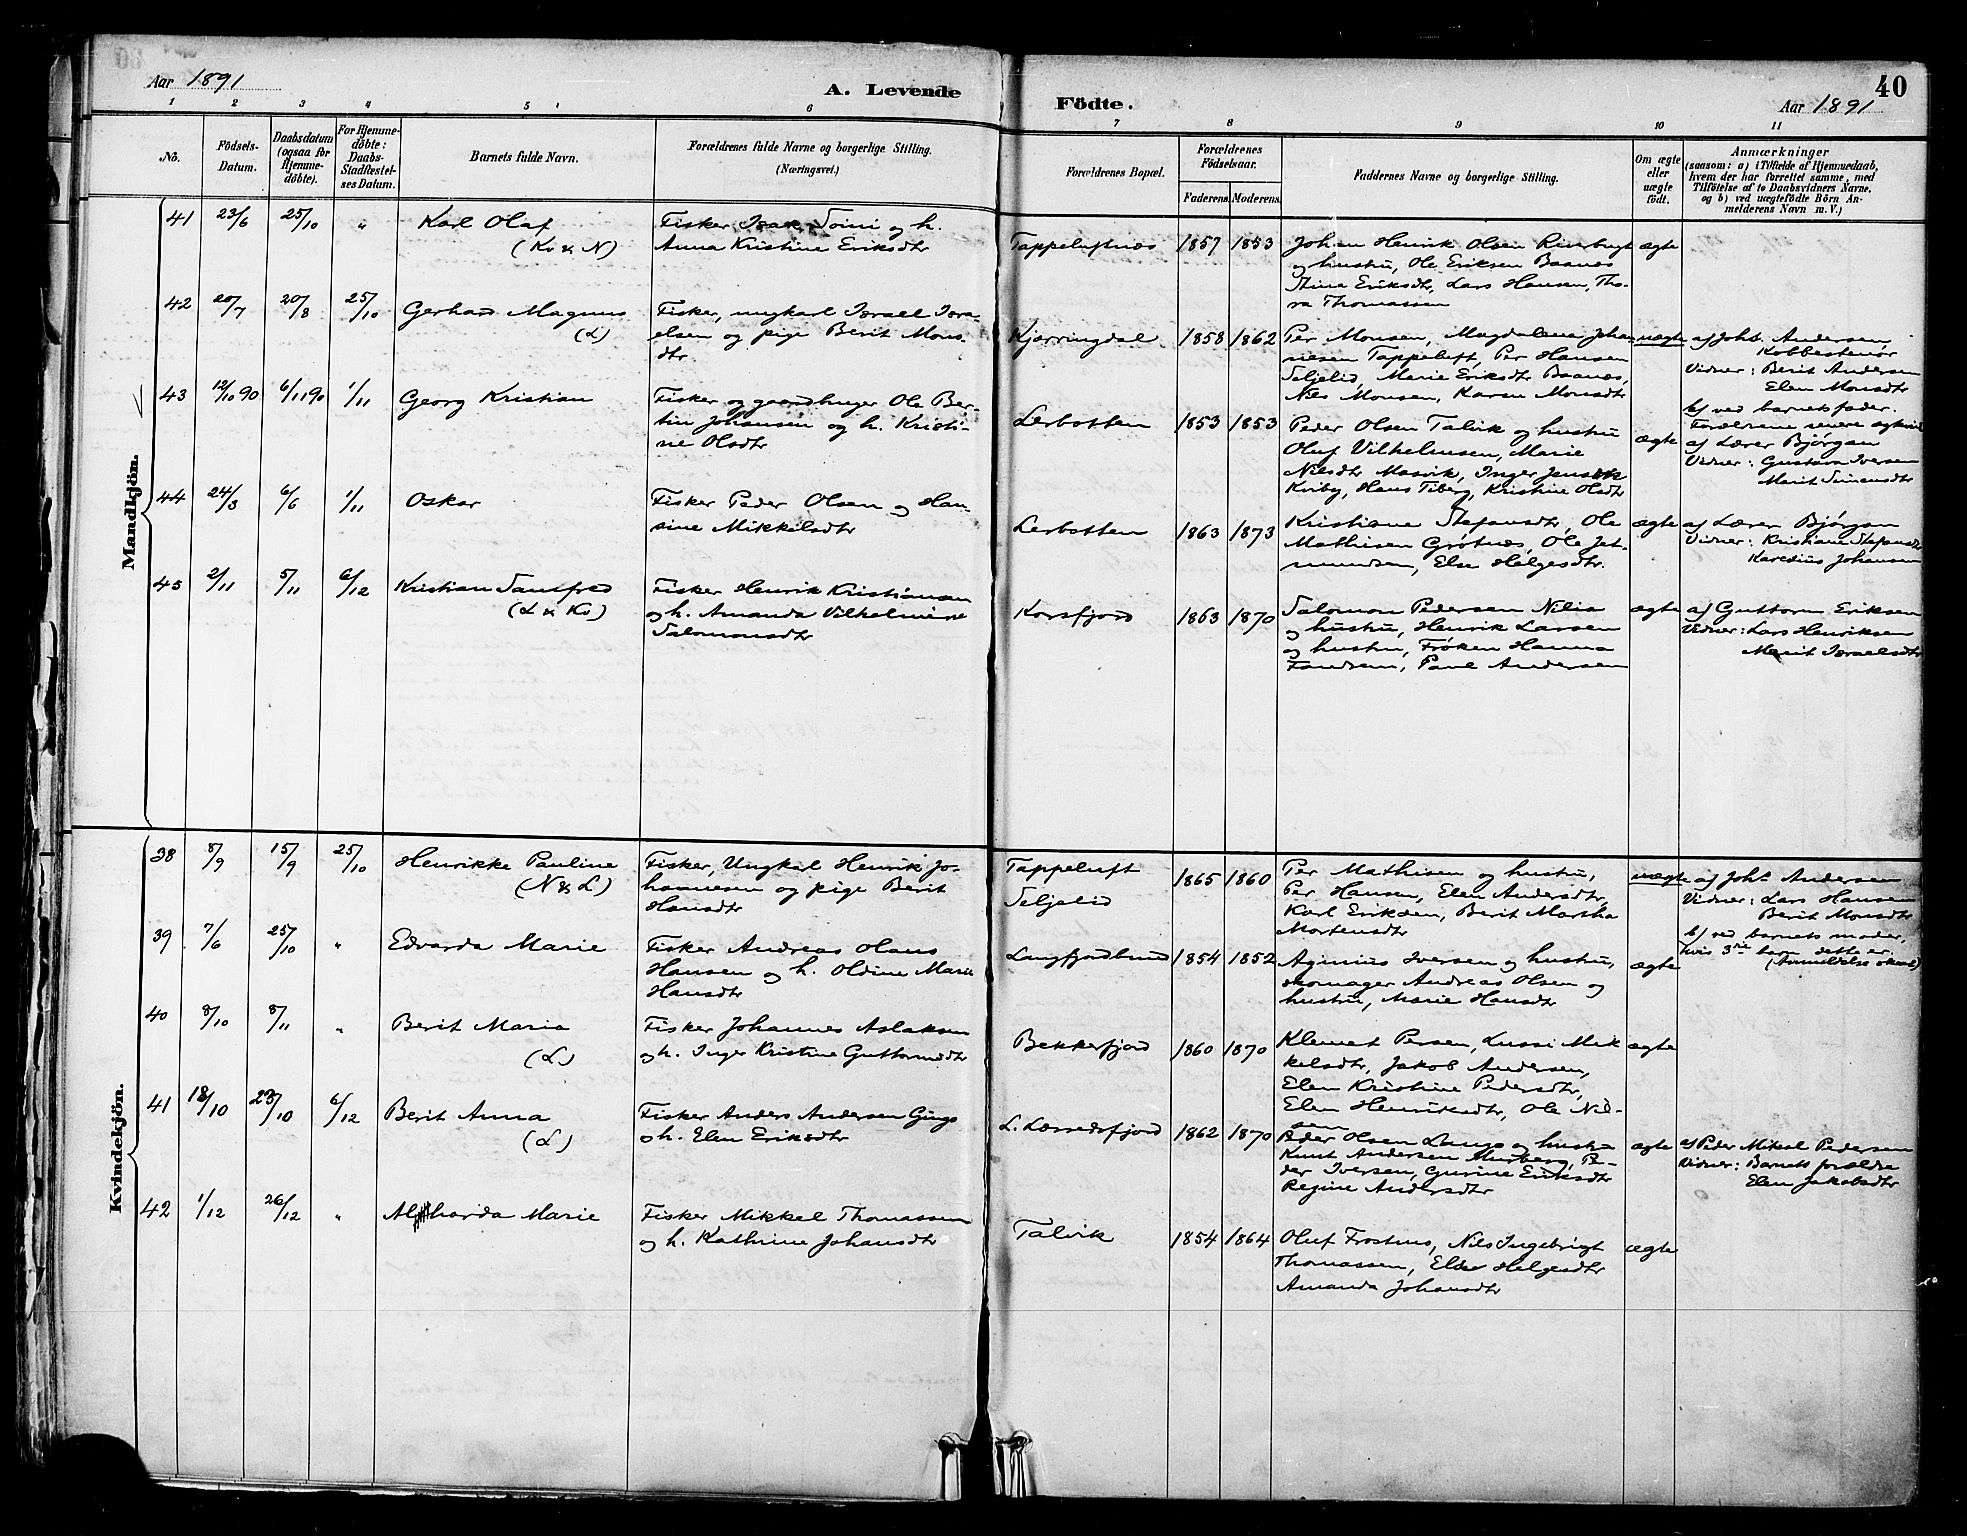 Aar 1891
A. Levende
Födte.
40
Aar 1891
1 2 3 4 5 6 7 8 9 10 11
No.
Födsels-Datum.
Daabsdatum (ogsaa for Hjemmedöbte).
For Hjemmedöbte: Daabs-Stadfæstelses Datum.
Barnets fulde Navn.
Forældrenes fulde Navne og borgerlige Stilling.
(Næringsvei.)
Forældrenes Bopæl.
Forældrenes Födselsaar.
Faderens. Moderens.
Faddernes Navne og borgerlige Stilling.
Om ægte eller uægte födt.
Anmærkninger
(saasom: a) i Tilfælde af Hjemmedaab, hvem der har forrettet samme, med Tilföielse af to Daabsvidners Navne, og b) ved uægtefödte Börn Anmelderens Navn m. V.)
Mandkjön.
41 23/6 25/10 " Karl Olaf
(Kv & N)
Fisker Isak Soini og h.
Anna Kristine Eriksdtr
Tappeluftnæs 1857 1853
Johan Henrik Olsen
og hustru, Ole Eriksen Baanæs
Stine Eriksdtr, Lars Hansen, Tho-
ra Thomassen
ægte
42 20/7 20/8 25/10 Gerhard Magnus
(L)
Fisker, ungkarl Israel Isra-
elsen og pige Berit Mons-
dtr
Kjærringdal 1858 1862
Per Monsen, Magdalena Johan-
nesen Tappeluft, Per Hansen
Seljelid, Marie Eriksdtr Baanæs,
Nils Monsen, Karen Monsdtr
uægte
a/ Joh. Andersen
Kobbestenør
Vidner: Berit Andersen
Elen Monsdtr
b/ ved barnets fader.
Forældrene senere
43 12/10 90 6/11 90 1/11 Georg Kristian
Fisker og gaardbruger Ole Ber-
tin Johansen og h. Kristi-
ne Olsdtr
Lerbotten 1853 1853
Peder Olsen Talvik og hustru
Oluf Vilhelmsen, Marie
Nilsdtr Masvik, Inger Jensen
Kviby, Hans Tiberg, Kristine Olsdtr
ægte
a/ Lærer Bjørgan
Vidner: Gustava Iversen
Marit Simensdtr
44 24/3 6/6 1/11 Oskar
Fisker Peder Olsen og Han-
sine Mikkelsdtr
Lerbotten 1863 1873
Kristiane Stefansdtr, Ole
Mathisen Grøtnæs, Ole Jet-
mundsen, Else Helgesdtr.
ægte
a/ Lærer Bjørgan
Vidner: Kristiane Stefansdtr
Karedius Johansen
45 2/11 5/11 6/12 Kristian Sansfred
(L & Kv)
Fisker Henrik Kristiansen
og h. Amanda Vilhelmine
Salomonsdtr
Korsfjord 1863 1870
Salomon Pedersen Nilia
og hustru, Henrik Larsen
og hustru, Frøken Hanna
Fandrem, Paul Andersen
ægte
a/ Guttorm Eriksen
Vidner: Lars Henriksen
Marit Israelsdtr
Kvindekjön.
38 8/9 15/9 25/10 Henrikke Pauline
(N & L)
Fisker, Ungkarl Henrik Jo-
hannesen og pige Berit
Hansdtr
Tappeluft
Seljelid
1865 1860
Per Mathisen og hustru,
Per Hansen, Elen Andersdtr,
Karl Eriksen, Berit Martha
Mortensdtr
uægte
a/ Joh. Andersen
Vidner: Lars Hansen
Berit Monsdtr
b/ ved barnets moder,
hvis 3die barn dette er.
(Anmeldelse)
39 7/6 25/10 " Edvarda Marie
Fisker Andreas Hans
Hansen og h. Oldine Marie
Hansdtr
Langfjordbund 1854 1852
Aginius Iversen og hustru,
skomager Andreas Olsen og
hustru, Marie Hansdtr
ægte
40 8/10 8/11 " Berit Maria
(L)
Fisker Johannes Aslaksen
og h. Inger Kristine Guttormsdtr
Bekkerfjord 1860 1870
Klemet Persen, Lussi Mik-
kelsdtr, Jakob Andersen,
Elen Kristine Pedersdtr,
Elen Henriksdtr, Ole Nil-
sen
ægte
41 18/10 23/10 6/12 Berit Anna
(L)
Fisker Anders Andersen Ginge
og h. Elen Eriksdtr
L. Lærredsfjord 1862 1870
Peder Olsen Lange og hustru
Knut Andersen Murberg, Pe-
der Iversen, Gurine Eriksdtr
Regine Andersdtr
ægte
a/ Peder Mikael Pedersen
Vidner: Barnets forældre
Elen Jakobsdtr
42 1/12 26/12 " Alfharda Marie
Fisker Mikkel Thomassen
og h. Kathrine Johansdtr
Talvik 1854 1864
Oluf Frostmo, Nils Ingebrigt
Thomassen, Else Helgesdtr
Amanda Johansdtr
ægte